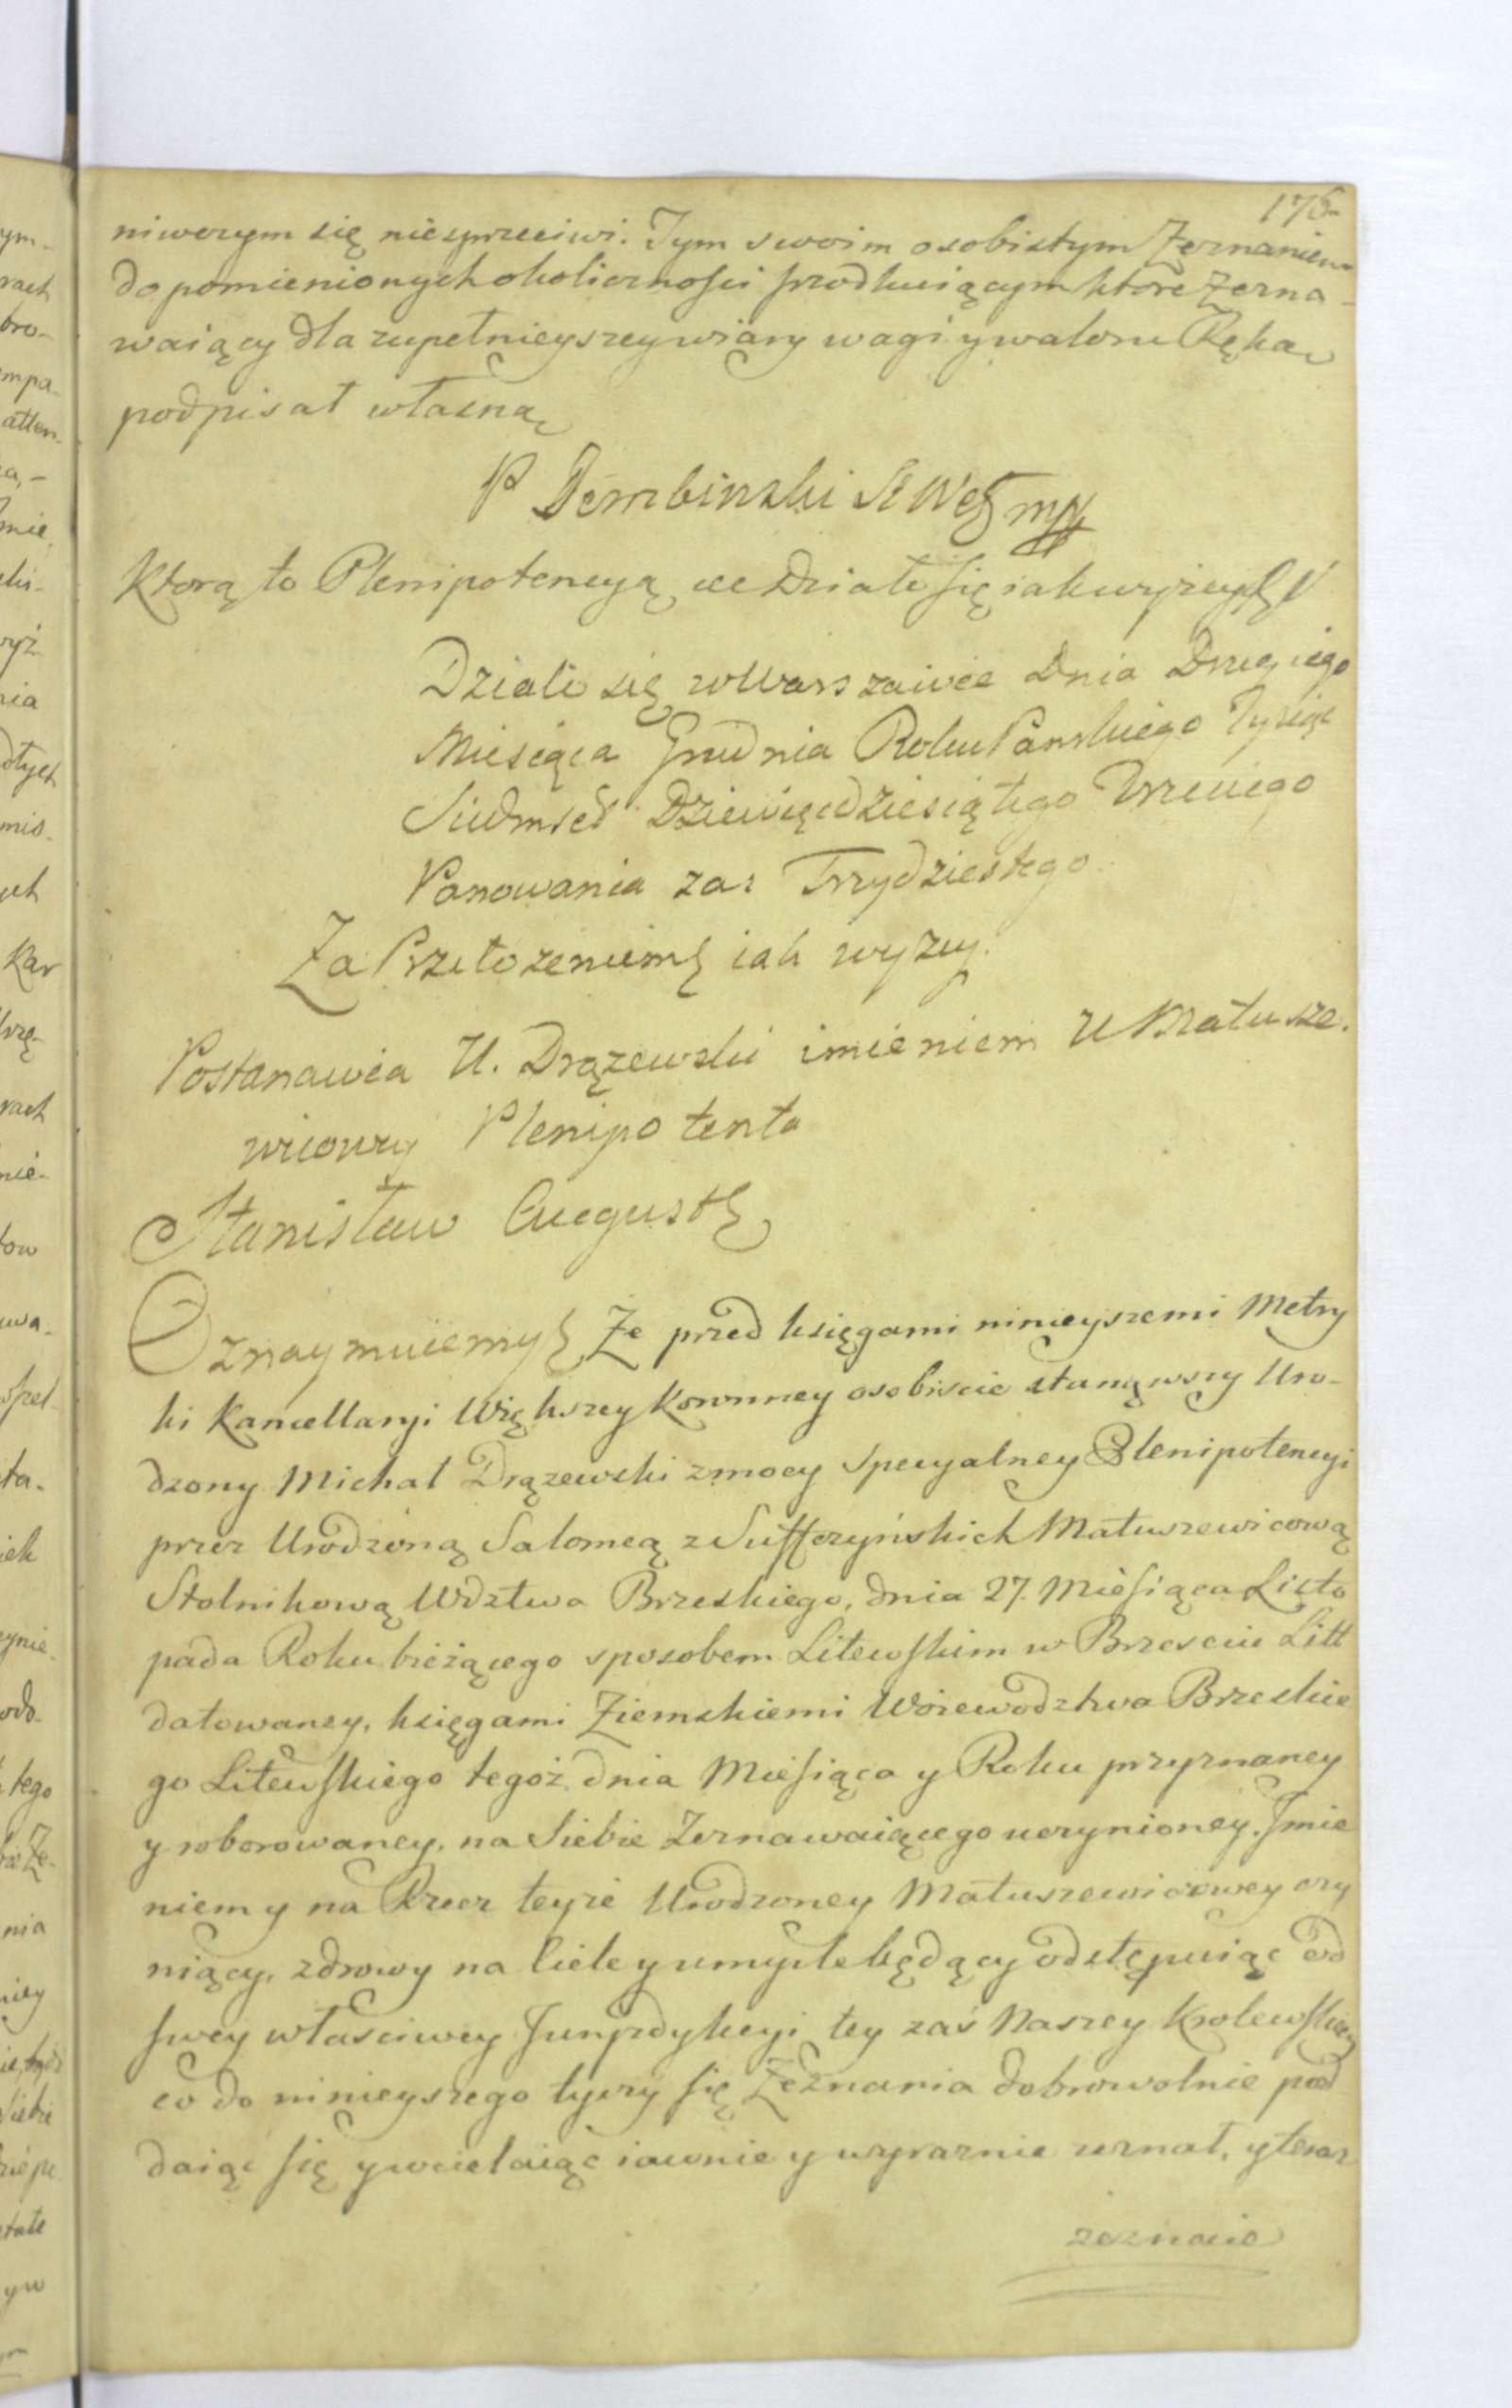 176
niwczym się niesprzeciwi. Tym swoim osobistym Zeznaniem
do pomienionych okolicznosci służącym ktore Zezna-
waiący dla zupełnieyszey wiary wagi y waloru Ręką
podpisał własną
P Dembinski mp
Ktorą to Plenipotencyą &c Działo się iak wyżey
Działo się w Warszawie Dnia Drugiego
Miesiąca Grudnia Roku Panskiego Tysiąc
Siedmset Dziewięcdziesiątego Trzeciego
Panowania zaś Trzydziestego.
Za Przełozeniem iak wyzey.
Postanawia U. Drązewski imieniem U Matusze.
wicowey Plenipotenta
Stanisław August
Oznaymuiemy Że przed księgami ninieyszemi Metry
ki Kancellaryi Większey Koronney osobiscie stanąwszy Uro-
dzony Michał Drązewski z mocy specyalney Plenipotencyi
przez Urodzoną Salomeą z Suffczyńskich Matuszewicową
Stolnikową Wdztwa Brzeskiego, dnia 27. Miesiąca Listo
pada Roku bieżącego sposobem Litewskim w Brzesciu Litt
datowaney, księgami Ziemskiemi Woiewodztwa Brzeskie
go Litewskiego tegoż dnia Miesiąca y Roku przyznaney
y roborowaney, na Siebie Zeznawaiącego uczynioney. Imie
niem y na Rzecz teyże Urodzoney Matuszewicowey czy
niący, zdrowy na ciele y umysle będący odstępuiąc od
swey własciwey Jurysdykcyi tey zaś Naszey Krolewskiey
co do ninieyszego tyczy się Zeznania dobrowolnie pod
daiąc się y wcielaiąc iawnie y wyraznie zeznał, y teraz
zeznaie